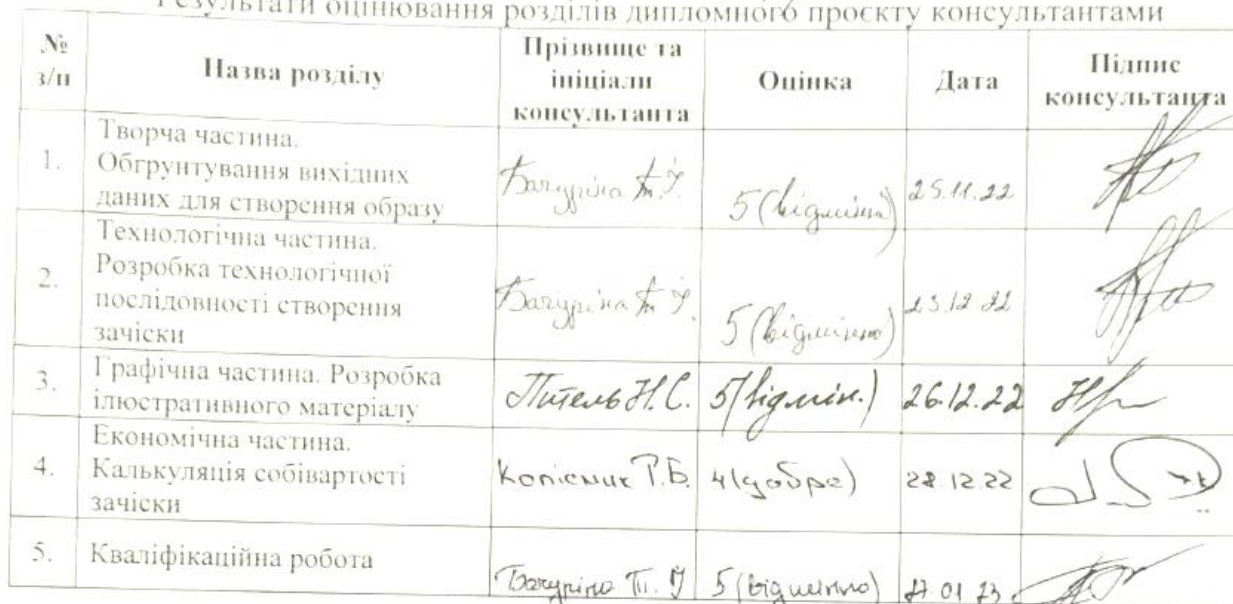 Результати оцінювання розділів дипломного проєкту консультантами
№ з/п
Назва розділу
Прізвище та ініціали консультанта
Оцінка
Дата
Підпис консультанта
1.
Творча частина.
Обгрунтування вихідних
даних для створення образу
Бачуріна
5 (відмінно)
25.11.22
2.
Технологічна частина.
Розробка технологічної
послідовності створення
зачіски
Бачуріна
5 (відмінно)
3.
Графічна частина. Розробка
ілюстративного матеріалу
Пітель Н.С.
5 (відмін.)
26.12.22
4.
Економічна частина.
Калькуляція собівартості
зачіски
Р.Б.
4 (добре)
28.12.22
5.
Кваліфікаційна робота
Бачуріна
5 (відмінно)